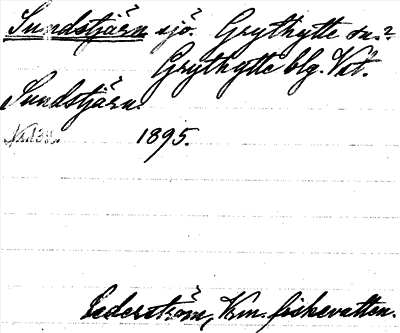 Sundstjärn sjö. Grythytte sn.²
Grythytte blg. Vstm.
Sundstjärn.
1895.
Cederström, Vm. fiskevatten.